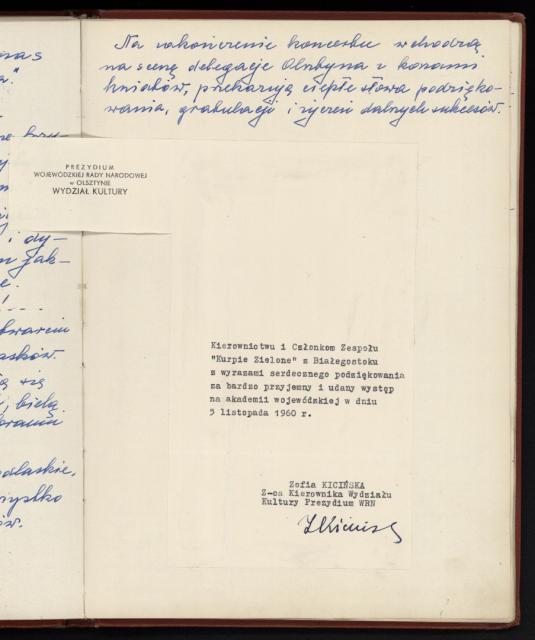 Na zakończenie koncertu wchodzą
na scenę delegacje Olsztyna z koszami
kwiatów, przekazują ciepłe słowa podzięko-
wania, gratulacji i życzeń dalszych sukcesów.
PREZYDIUM
WOJEWÓDZKIEJ RADY NARODOWEJ
w OLSZTYNIE
WYDZIAŁ KULTURY
i dy-
jak-
się
odlaskie,
Kierownictwu i Członkom Zespołu
"Kurpie Zielone" z Białegostoku
z wyrazami serdecznego podziękowania
za bardzo przyjemny i udany występ
na akademii wojewódzkiej w dniu
5 listopada 1960 r.
Zofia KICIŃSKA
Z-ca Kierownika Wydziału
Kultury Prezydium WRN